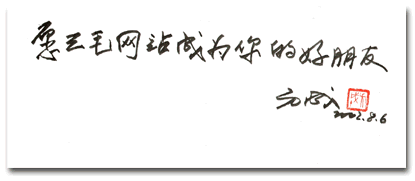 愿三毛网站成为你的好朋友
方成
2002.8.6